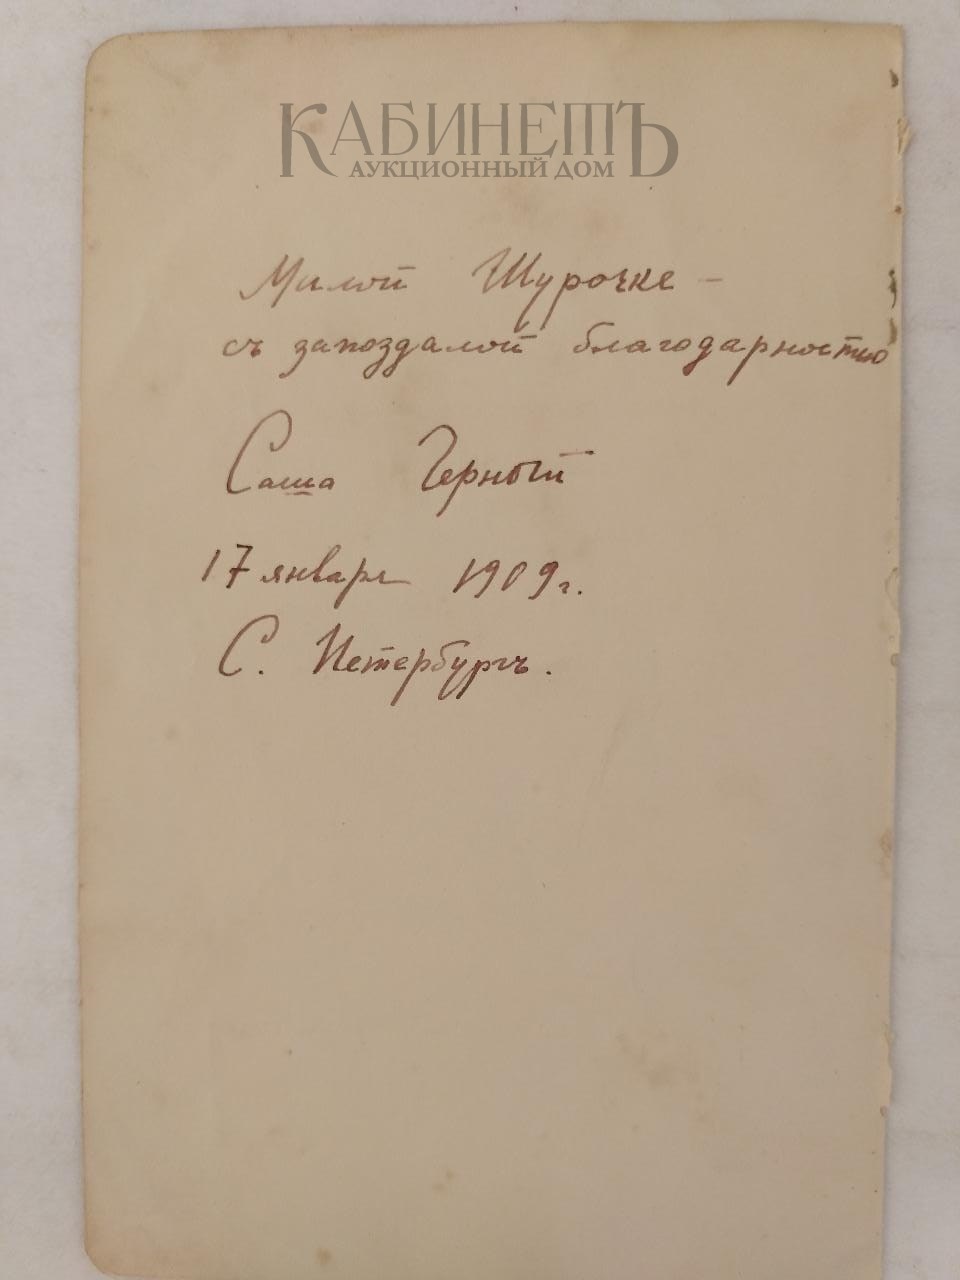 КАБИНЕТЪ
АУКЦИОННЫЙ ДОМ
Милой Шурочке –
съ запоздалой благодарностью
Саша Черный
17 января 1909 г.
С. Петербургъ.